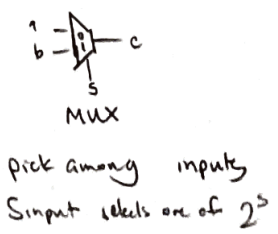 a
b
0
1
c
S
MUX
pick among inputs
S input selects one of 2^S